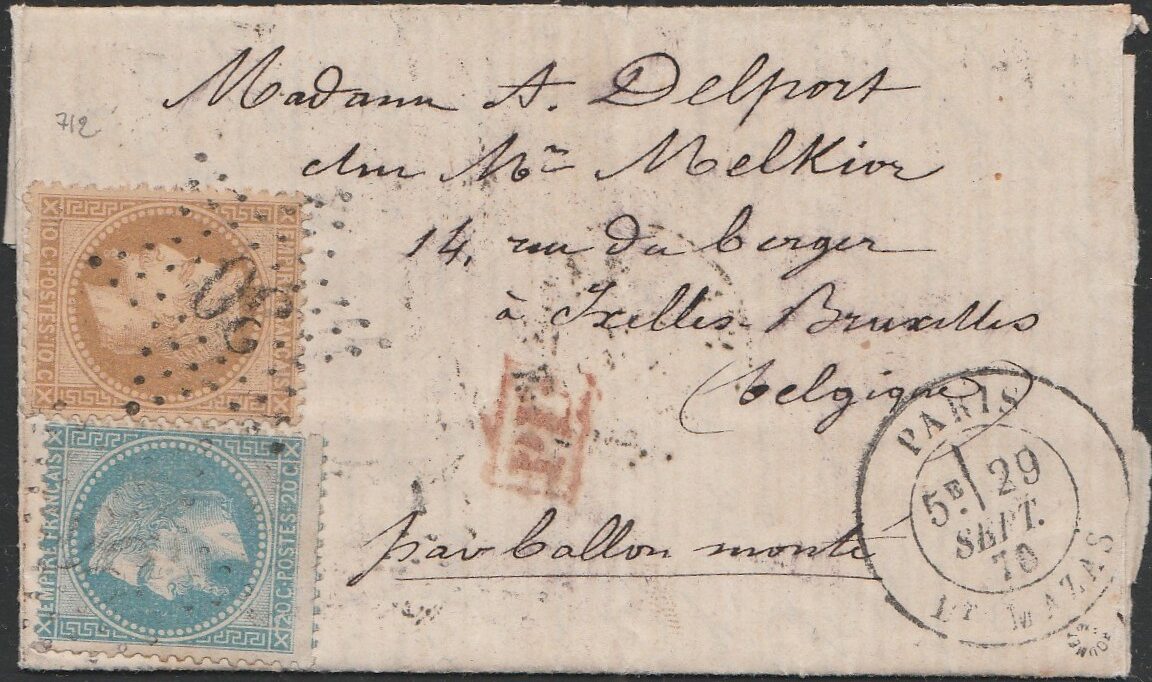 Madame A. Delport
chez Mr Melkior
14, rue du berger
à Ixelles-Bruxelles
(belgique)
par ballon monté
712
10 C. POSTES 10 C.
EMPIRE FRANÇAIS
EMPIRE FRANÇAIS
20 C. POSTES 20 C.
PARIS
5E 29
SEPT.
70
PL. MAZAS